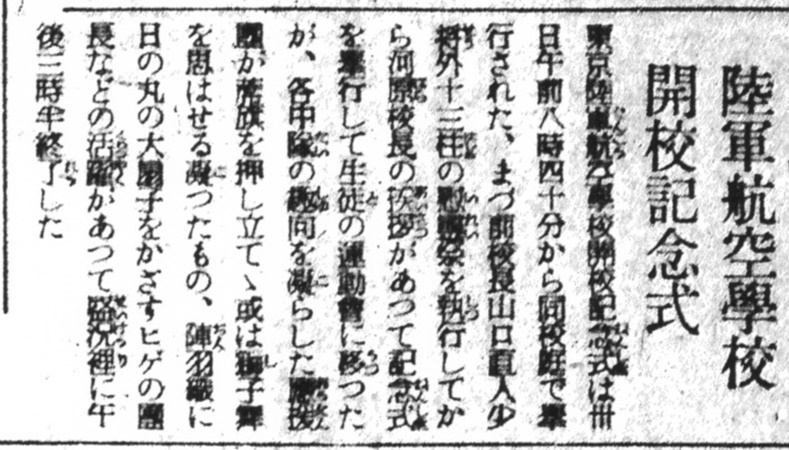 陸軍航空學校
開校記念式
東京陸軍航空學校開校記念式は卅
日午前八時四十分から同校庭で擧
行された、まづ前校長山口直人少
將外十三柱の慰靈祭を執行してか
ら河原校長の挨拶があつて記念式
を擧行して生徒の運動會に移つた
が、各中隊の趣向を凝らした應援
團が薦旗を押し立てゝ或は獅子舞
を思はせる凝つたもの、陣羽織に
日の丸の大團子をかざすヒゲの團
長などの活躍があつて盛況裡に午
後三時半終了した